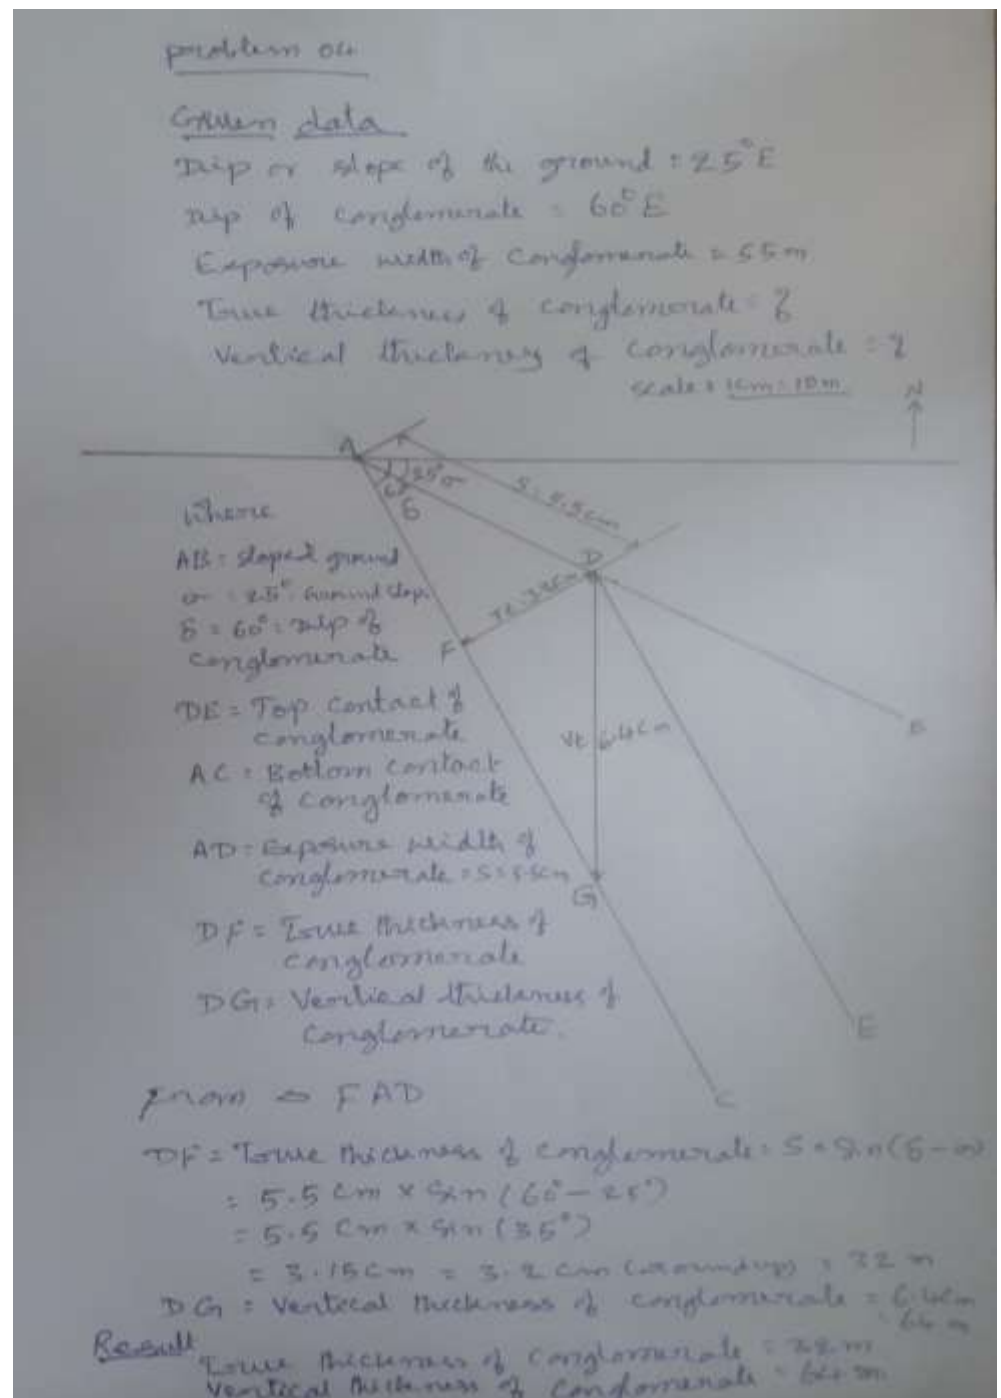 problem 04
Given data
Dip or slope of the ground = 25°E
Dip of conglomerate = 60°E
Exposure width of conglomerate = 55 m
True thickness of conglomerate = ?
Vertical thickness of conglomerate = ?
scale = 1cm = 10m
N
A
25° σ
60°
δ
S = 5.5cm
where
AB = sloped ground
σ = 25° = Ground slop.
δ = 60° = Dip of
conglomerate
D
F
B
DE = Top contact of
conglomerate
Vt 6.4cm
AC = Bottom contact
of conglomerate
AD = Exposure width of
conglomerate = S = 5.5cm
G
DF = True thickness of
conglomerate
DG = Vertical thickness of
conglomerate.
E
C
From △ FAD
DF = True thickness of conglomerate = S × Sin (δ - σ)
= 5.5 cm × Sin (60° - 25°)
= 5.5 cm × Sin (35°)
= 3.15cm = 3.2 cm (roundup) = 32 m
DG = Vertical thickness of conglomerate = 6.4cm
= 64 m
Result
True thickness of conglomerate = 32 m
Vertical thickness of conglomerate = 64 m